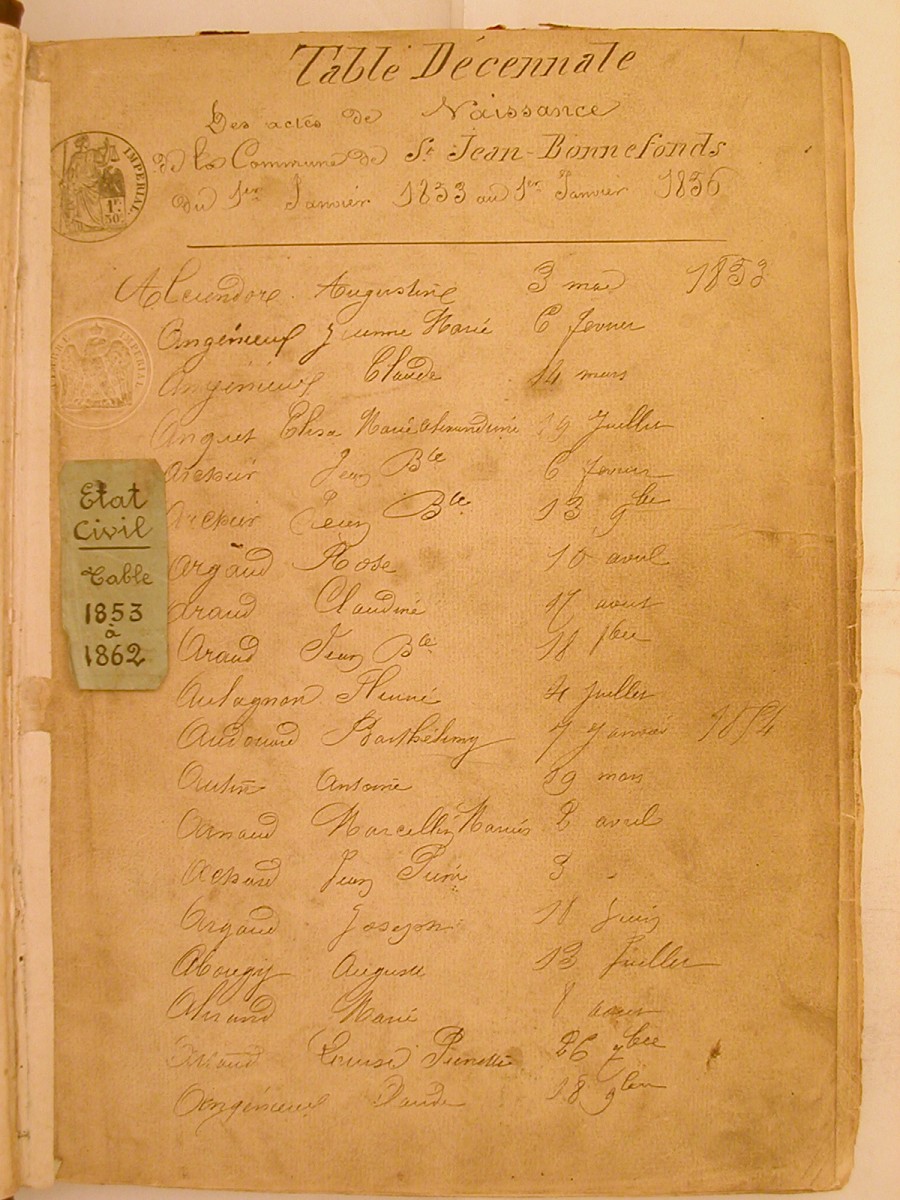 Table Décennale
Des actes de Naissance
de la Commune de St Jean-Bonnefonds
du 1er Janvier 1853 au 1er Janvier 1856
IMPERIAL
1F.
50
Augustine 3 mai 1853
Angénieux Jeanne Marie 6 fevrier
Angénieux Claude 14 mars
Elisa Marie Alexandrine 29 Juillet
Jean Bte 6 fevrier
Jean Bte 13 9bre
Etat
Civil
Table
1853
à
1862
Argaud Rose 10 avril
Araud Claudine 17 aout
Araud Jean Bte 18
Aulagnon Fleurie 4 Juillet
Audouard Barthélemy 7 Janvier 1854
Autin Antoine 19 mars
Arnaud Marcellin Marius 2 avril
Achard Jean Pierre 3 -
Argaud Joseph 18 Juin
Abougy Auguste 13 Juillet
Marie 8 aout
Louise Pierrette 26 7bre
Angénieux Claude 18 9bre